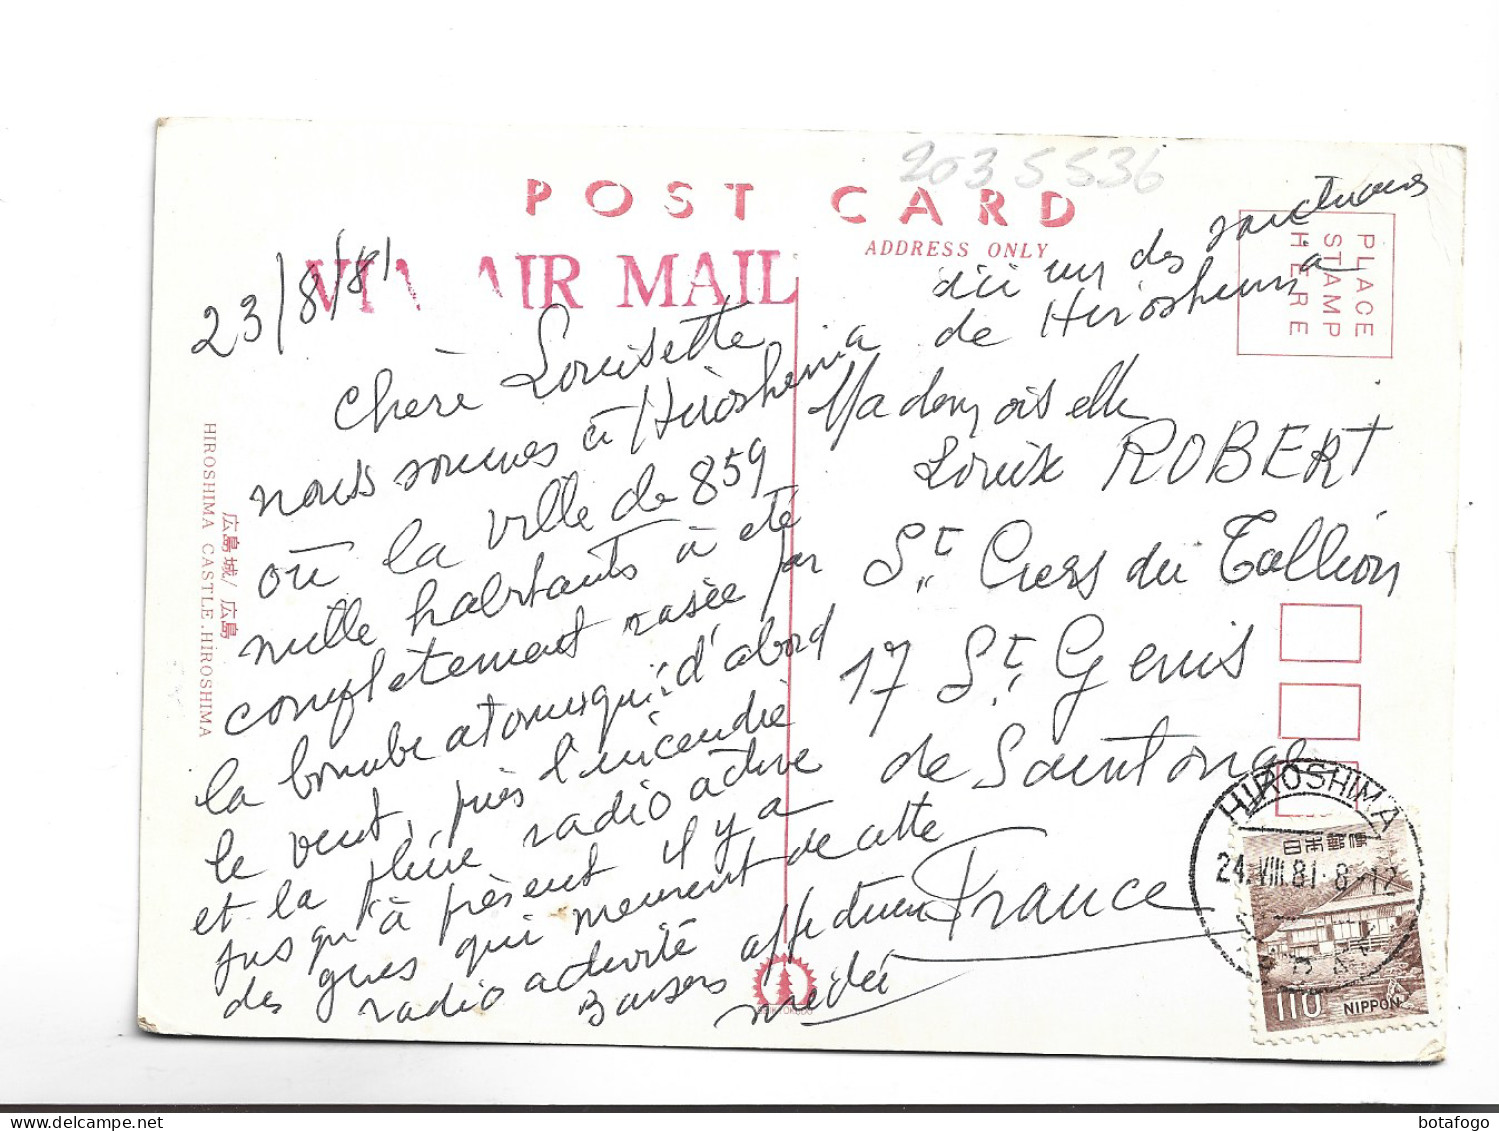 2035536
POST CARD
ADDRESS ONLY
VIA AIR MAIL
PLACE
STAMP
HERE
23/8/81
Chère Louisette
nous sommes à Hiroshima
où la ville de 859
mille habitants à eté
completement rasée par
la bombe atomique: d'abord
le vent, puis l'incendie
et la pluie radio active
jusqu'à présent il y a
des gens qui meurent de cette
radio activité
Baisers affectueux
ici un des sanctuaires
de Hiroshima
Mademoiselle
Louise ROBERT
St. Ciers du Tallion
17 St. Genis
de Saintonge
France
広島城/広島
HIROSHIMA CASTLE.HIROSHIMA
HIROSHIMA
24.VIII.81.8-12
日本郵便
110 NIPPON
botafogo